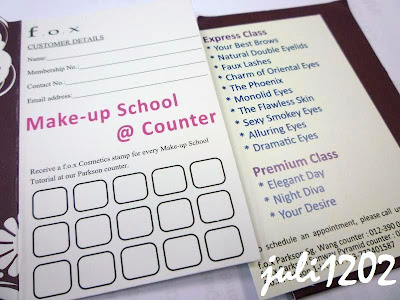 f.o.x
CUSTOMER DETAILS
Name:
Membership No.:
Contact No.:
Email address:
Make-up School
@ Counter
Receive a f.o.x Cosmetics stamp for every Make-up School
Tutorial at our Parkson counter.
Express Class
* Your Best Brows
* Natural Double Eyelids
* Faux Lashes
* Charm of Oriental Eyes
* The Phoenix
* Monolid Eyes
* The Flawless Skin
* Sexy Smokey Eyes
* Alluring Eyes
* Dramatic Eyes
Premium Class
* Elegant Day
* Night Diva
* Your Desire
schedule an appointment, please call us
f.o.x Parkson Sg. Wang counter : 012-390
Pyramid counter :
juli1202